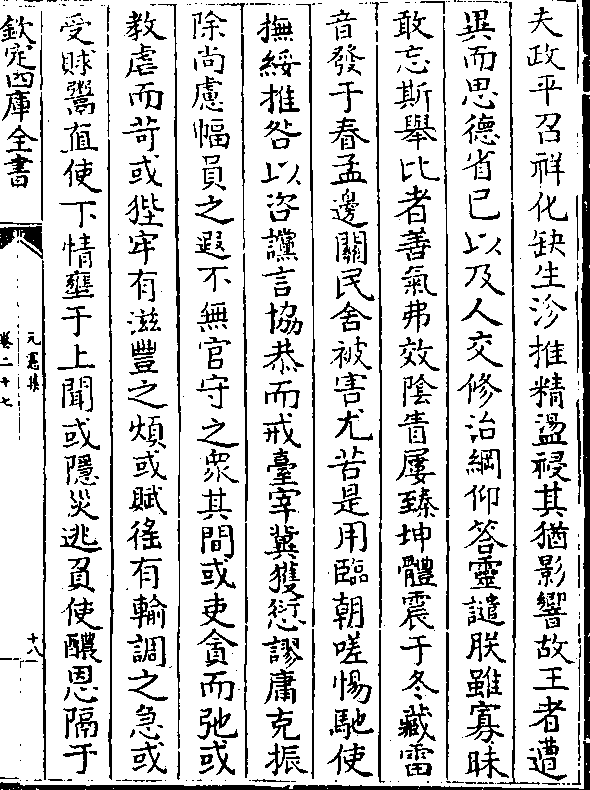 夫政平召祥化缺生沴推精盪祲其猶影響故王者遭
異而思德省已以及人交修治綱仰答靈譴朕雖寡昧
敢忘斯舉比者善氣弗效陰眚屢臻坤體震于冬藏雷
音發于春孟邊關民舍被害尤苦是用臨朝嗟惕馳使
撫綏推咎以咨讜言協恭而戒臺宰冀獲愆謬庸克振
除尚慮幅員之遐不無官守之衆其間或吏貪而弛或
教虐而苛或狴牢有滋豐之煩或賦徭有輸調之急或
受賕鬻直使下情壅于上聞或隱災逃負使醲恩隔于
欽定四庫全書
元憲集
卷二十七
十八